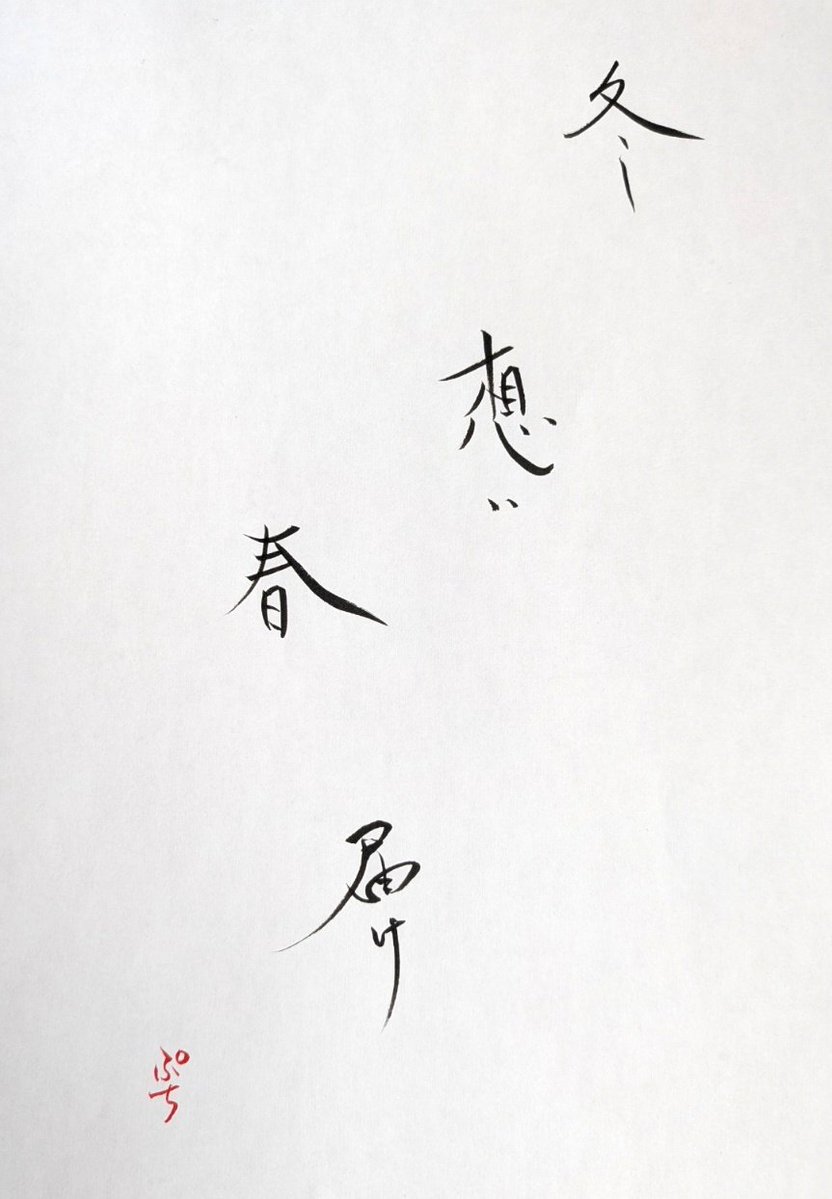 冬
想い
春
届け
ぷち